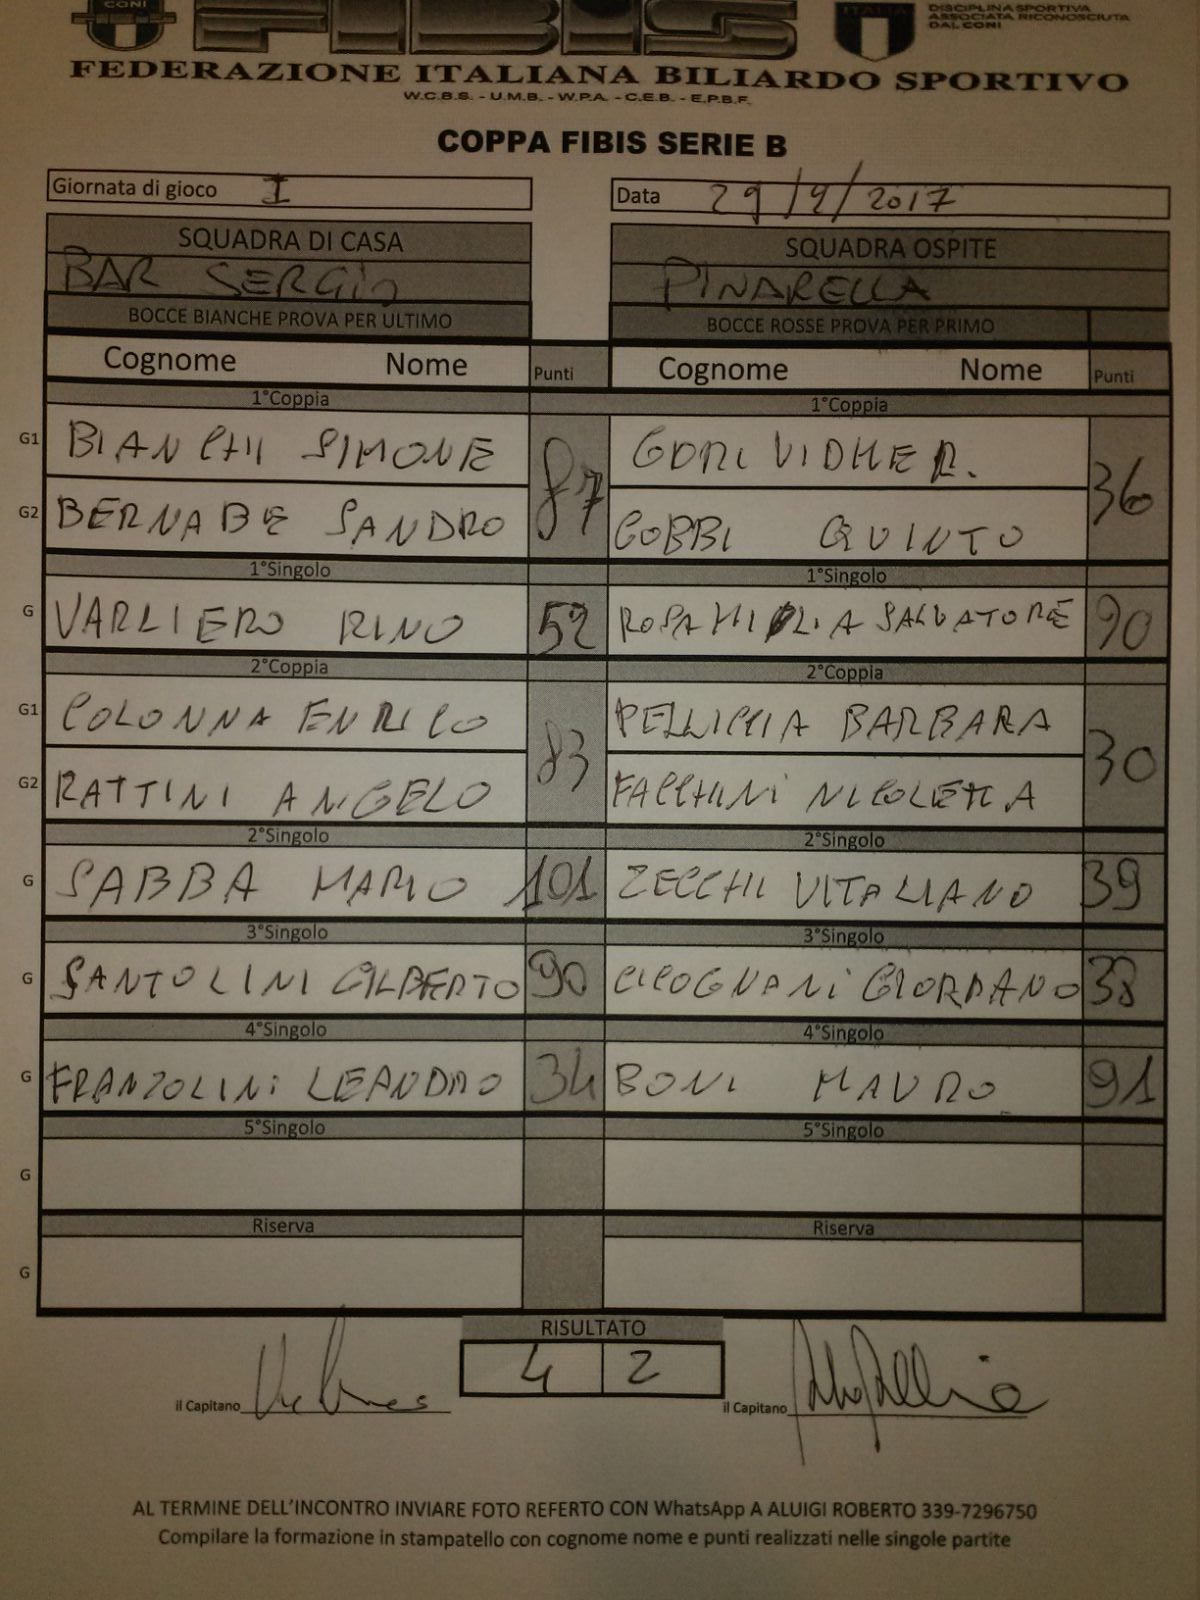 CONI FIBIS ITALIA DISCIPLINA SPORTIVA
ASSOCIATA RICONOSCIUTA
DAL CONI
FEDERAZIONE ITALIANA BILIARDO SPORTIVO
W.C.B.S. - U.M.B. - W.P.A. - C.E.B. - E.P.B.F.
COPPA FIBIS SERIE B
Giornata di gioco I Data 29/9/2017
SQUADRA DI CASA SQUADRA OSPITE
BAR SERGIO PINARELLA
BOCCE BIANCHE PROVA PER ULTIMO BOCCE ROSSE PROVA PER PRIMO
Cognome Nome Punti Cognome Nome Punti
1°Coppia 1°Coppia
G1 BIANCHI SIMONE 87 GORI VIDMER. 36
G2 BERNABE SANDRO GOBBI QUINTO
1°Singolo 1°Singolo
G VARLIERO RINO 52 ROSAMIGLIA SALVATORE 90
2°Coppia 2°Coppia
G1 COLONNA ENRICO 83 PELLICCIA BARBARA 30
G2 RATTINI ANGELO FACCHINI NICOLETTA
2°Singolo 2°Singolo
G SABBA MARIO 101 ZECCHI VITALIANO 39
3°Singolo 3°Singolo
G SANTOLINI GILBERTO 90 CICOGNANI GIORDANO 38
4°Singolo 4°Singolo
G FRANZOLINI LEANDRO 34 BONI MAURO 91
5°Singolo 5°Singolo
G
Riserva Riserva
G
RISULTATO
4 2
il Capitano il Capitano
AL TERMINE DELL'INCONTRO INVIARE FOTO REFERTO CON WhatsApp A ALUIGI ROBERTO 339-7296750
Compilare la formazione in stampatello con cognome nome e punti realizzati nelle singole partite